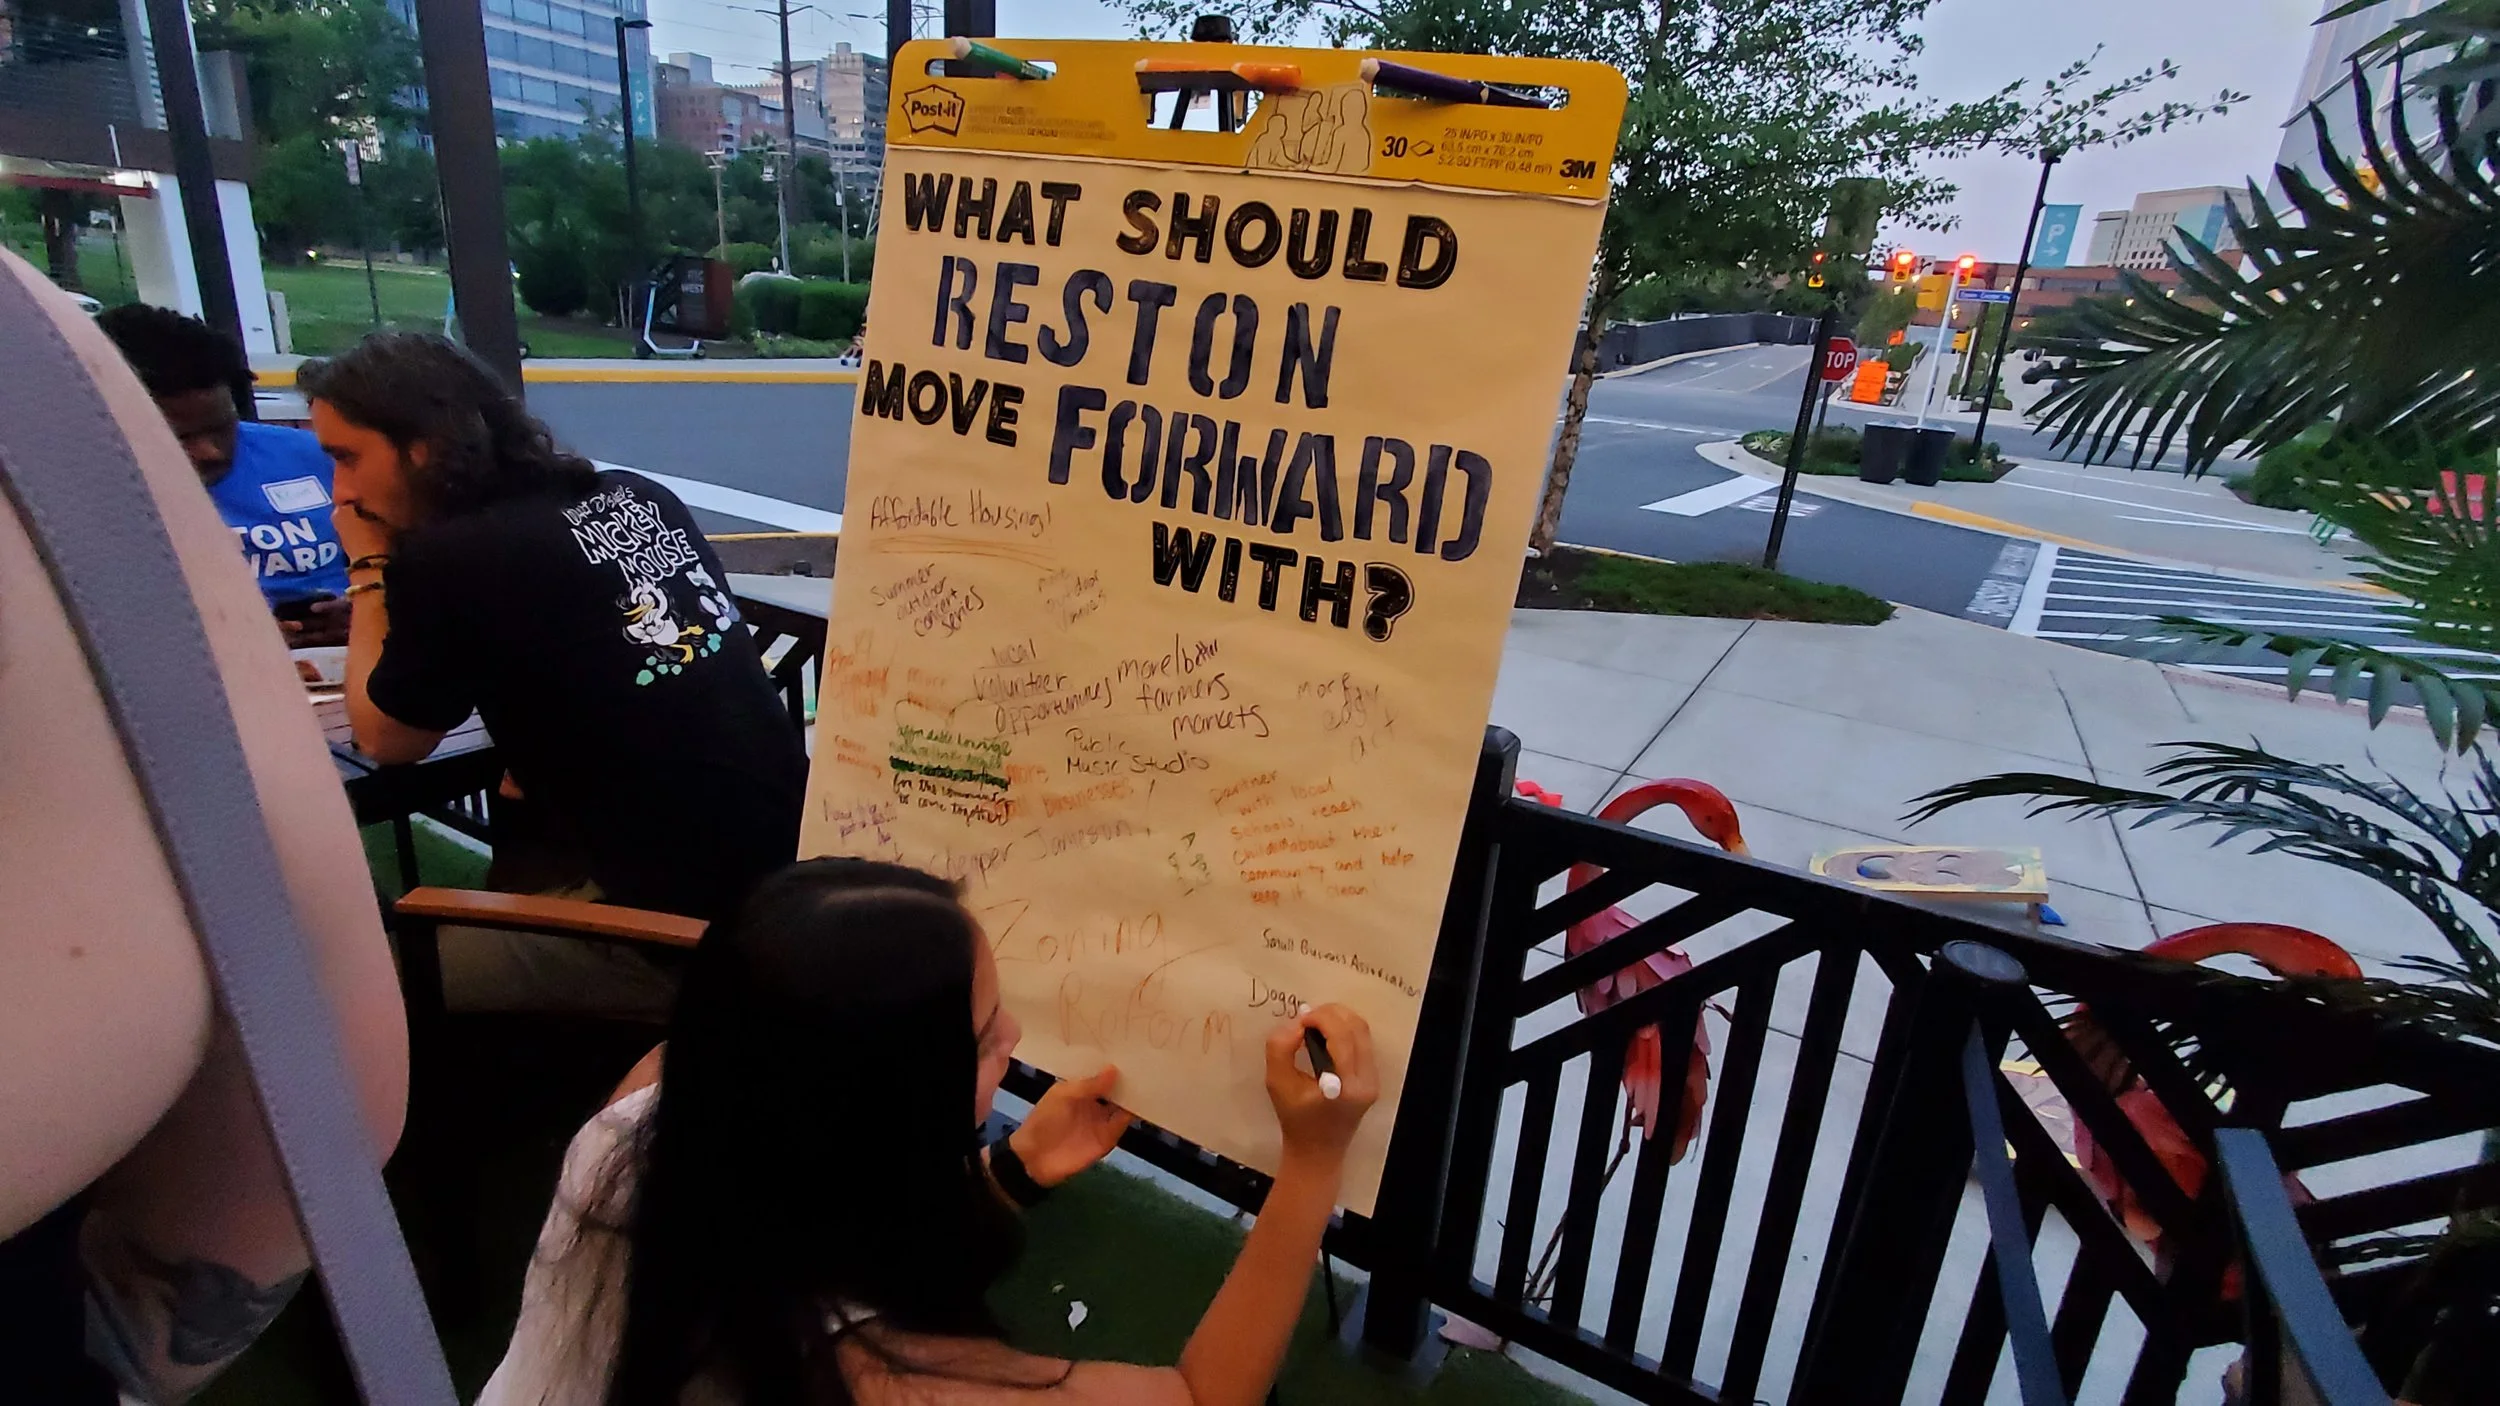 Post-it
30
25 IN/PO x 30 IN/PO
63.5 cm x 76.2 cm
5.2 SQ FT/PI² (0.48 m²)
3M
WHAT SHOULD
RESTON
MOVE FORWARD
WITH?
Affordable Housing!
Summer
outdoor
concert
series
local
Volunteer
opportunities
more/better
farmers
markets
more
Public
Music Studio
affordable lounge
for the community
to come together
more
businesses
cheaper Jameson
partner
with local
schools, teach
about their
community and help
keep it clean!
Zoning
Reform
Small Business Association
Dogg
WALT DISNEY'S
MICKEY
MOUSE
TON
WARD
WEST
P
P
TOP